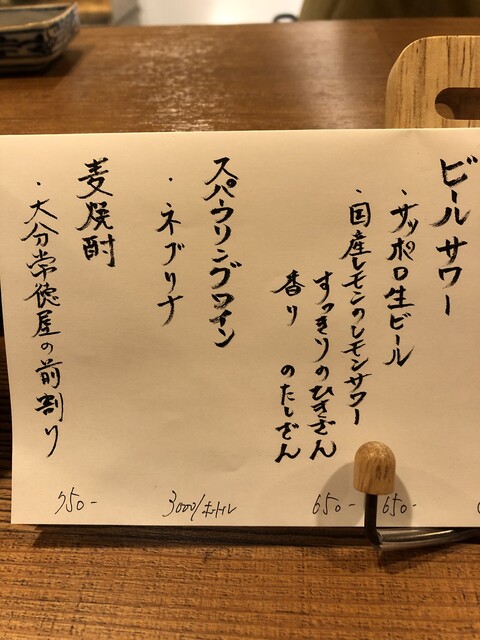 ビールサワー
・サッポロ生ビール
650-
・国産レモンのレモンサワー
すっきりのひきざん
香り のたしざん
650-
スパークリングワイン
・ネブリナ
3000/ボトル
麦焼酎
・大分常徳屋の前割り
750-